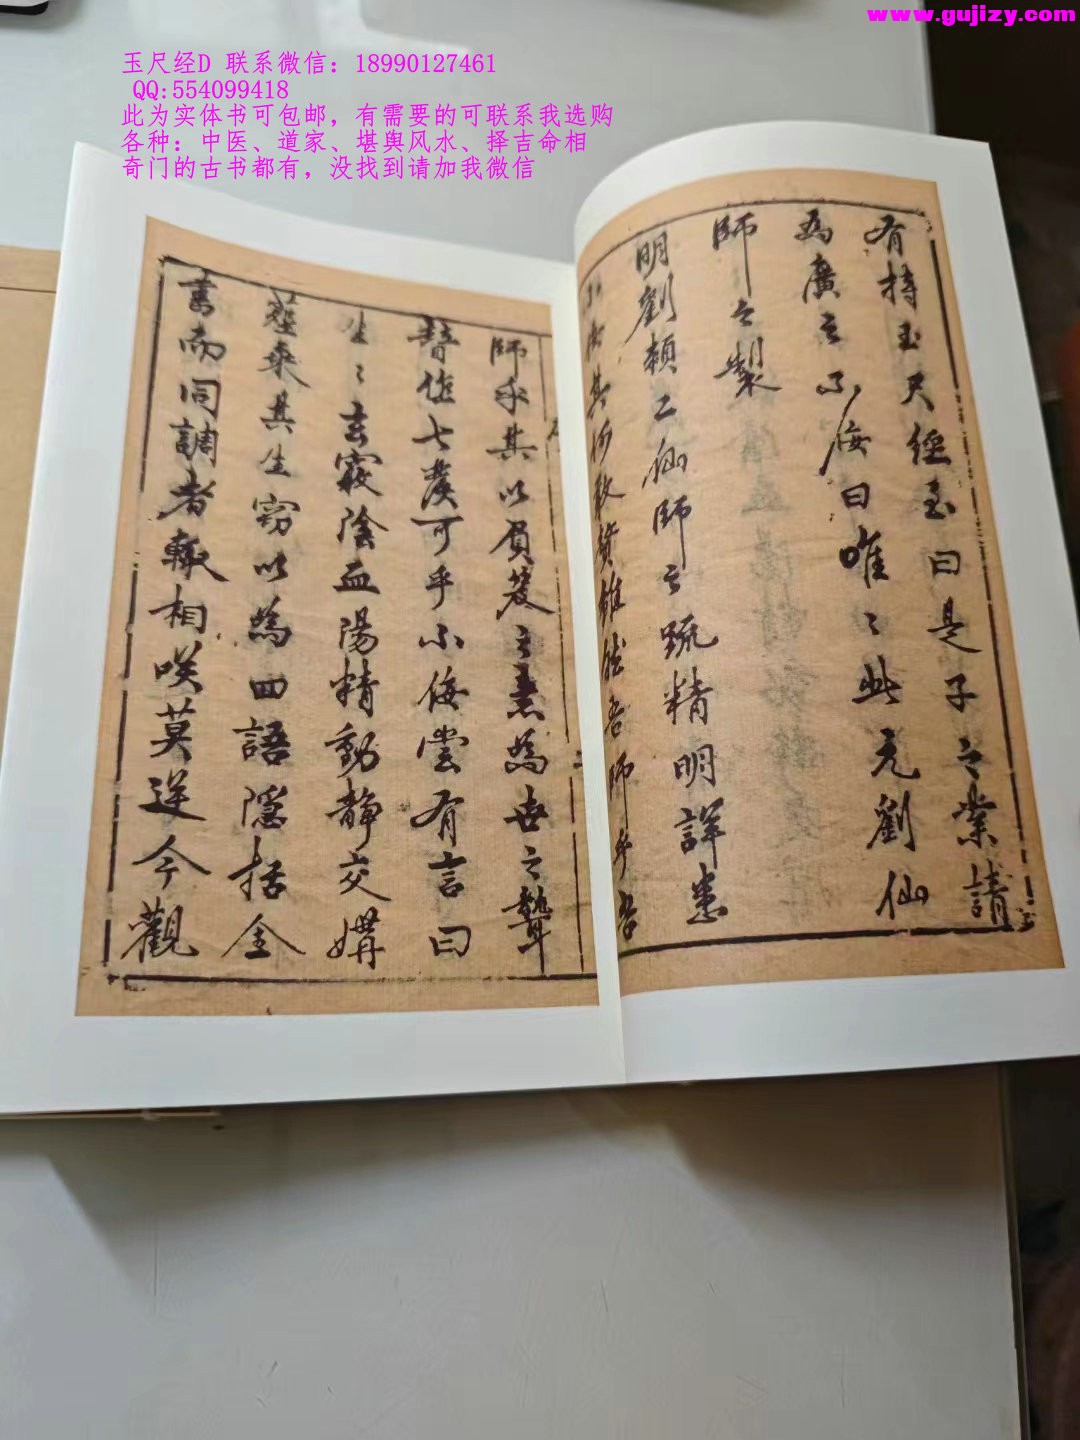 www.gujizy.com
玉尺经D 联系微信：18990127461
QQ:554099418
此为实体书可包邮，有需要的可联系我选购
各种：中医、道家、堪舆风水、择吉命相
奇门的古书都有，没找到请加我微信
有持玉尺經至曰是子之業請
為廣之小侮曰唯〻此元劉仙
師之製
明劉賴二仙師之疏精明詳悉
小侮其何敢贊雖然吾師乎吾
師乎其以負笈之素為世之聾
瞽作七發可乎小侮嘗有言曰
生〻玄竅陰血陽精動靜交媾
葬乘其生竊以為四語隱括全
書而同調者輒相咲莫逆今觀